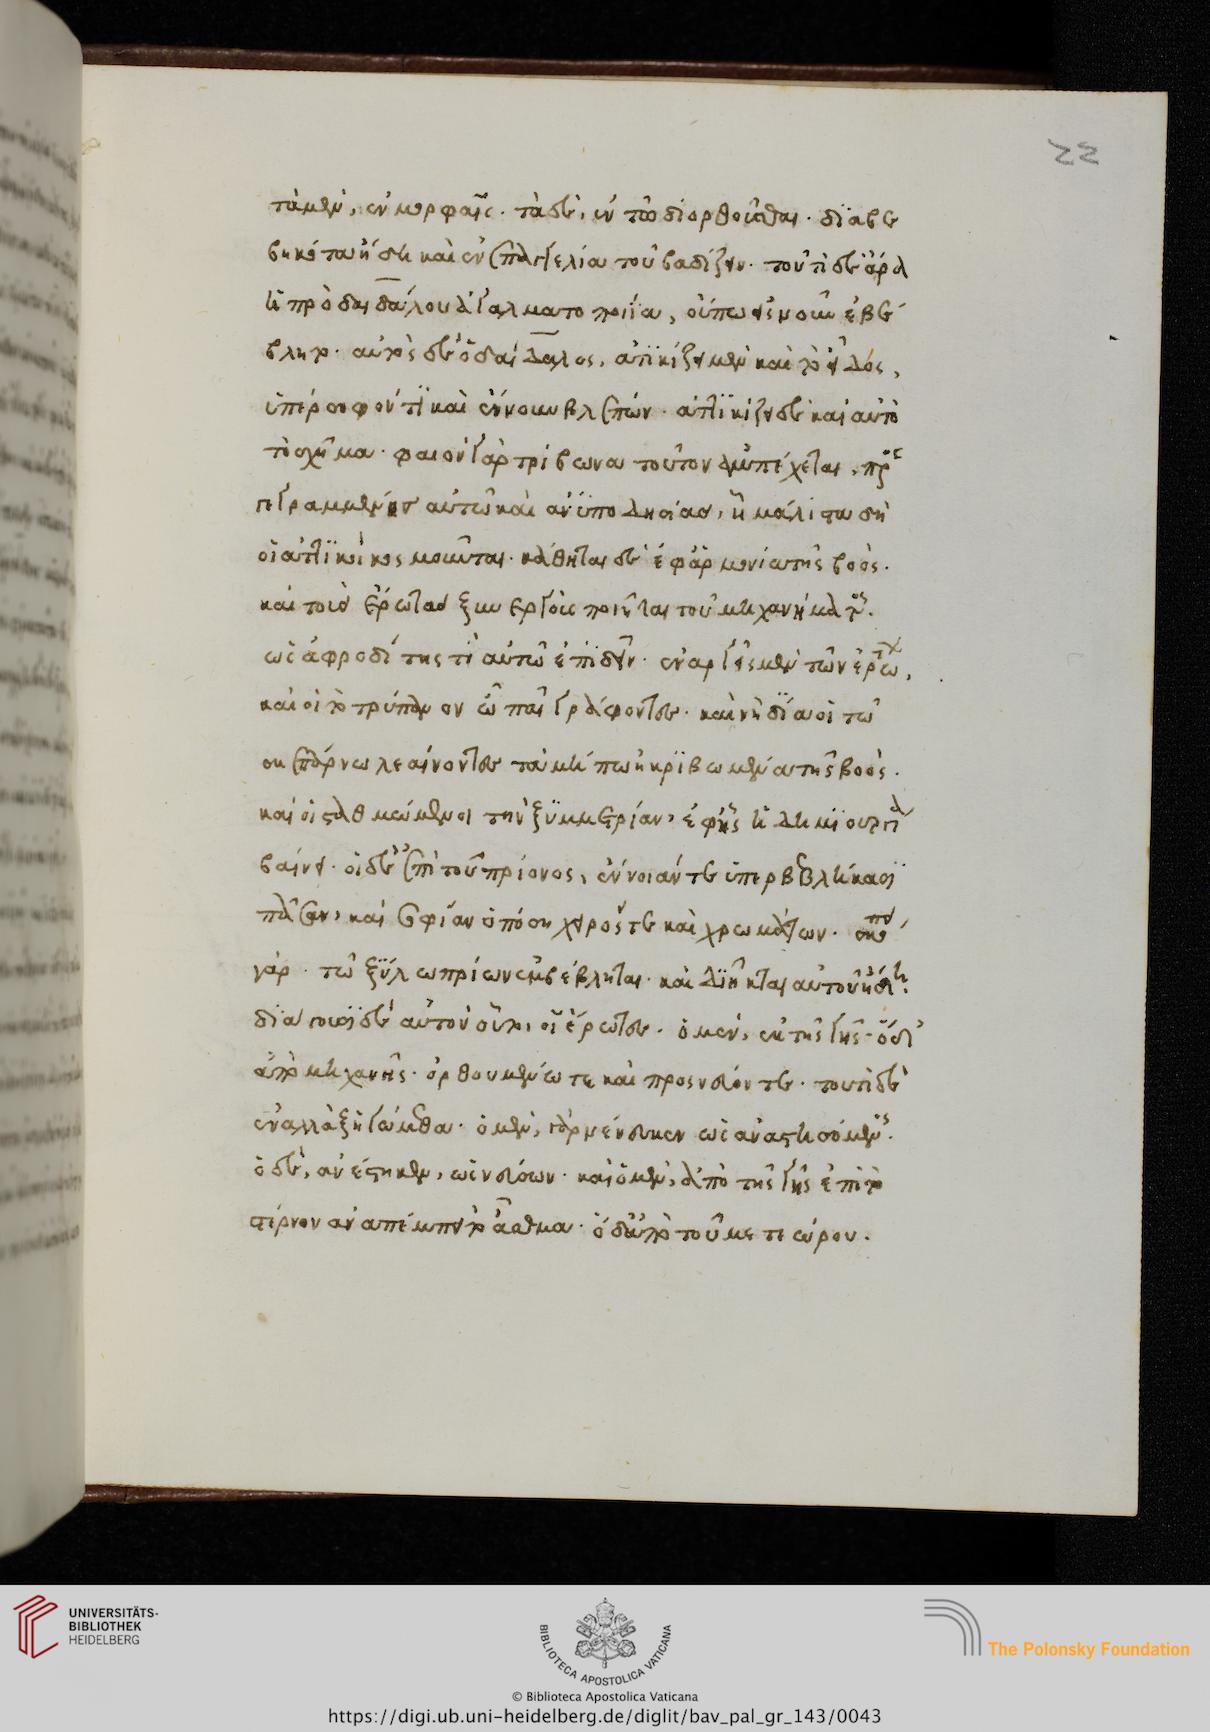 22
τὰ μὲν, ἐν μορφαῖς· τὰ δὲ, ἐν τῶ διορθοῦσθαι· διαβε
βηκότα ἤδη καὶ ἐν ἐπαγγελία τοῦ βαδίζειν· τουτὶ δὲ ἄρα
ἡ πρὸ δαιδάλου ἀγαλματοποιΐα, οὔπω ἐς νοῦν ἐβέ
βλητο· αὐτὸς δὲ ὁ δαίδαλος, ἀττικίζει μὲν καὶ τὸ εἶδος,
ὑπέρσοφόν τι καὶ ἔννουν βλέπων· ἀττικίζει δὲ καὶ αὐτὸ
τὸ σχῆμα· φαιὸν γὰρ τρίβωνα τοῦτον ἀμπέχεται, προσ
γεγραμμένης αὐτῶ καὶ ἀνυποδησίας, ἧ μάλιστα δὴ
οἱ ἀττικοὶ κοσμοῦνται· κάθηται δὲ ἐφ' ἁρμονία τῆς βοός·
καὶ τοὺς ἔρωτας ξυνεργοὺς ποιεῖται τοῦ μηχανήματος·
ὡς ἀφροδίτης τι αὐτῶ ἐπιδεῖν· ἐναργεῖς μὲν τῶν ἐρώτων,
καὶ οἱ τὸ τρύπανον ὦ παῖ στρέφοντες· καὶ νὴ δία οἱ τῶ
σκεπάρνω λεαίνοντες τὰ μήπω ἠκριβωμένα τῆς βοός·
καὶ οἱ σταθμώμενοι τὴν ξυμμετρίαν, ἐφ' ἧς ἡ δημιουργία
βαίνει· οἱ δὲ ἐπὶ τοῦ πρίονος, ἔννοιάν τε ὑπερβεβλήκασι
πᾶσαν, καὶ σοφίαν ὁπόση χειρός τε καὶ χρωμάτων· σκόπει
γάρ· τῶ ξύλω πρίων ἐμβέβληται· καὶ διῆκται αὐτοῦ ἤδη·
διάγουσι δὲ αὐτὸν οὗτοι οἱ ἔρωτες· ὁ μὲν, ἐκ τῆς γῆς· ὁ δ'
ἀπὸ μηχανῆς· ὀρθουμένω τε καὶ προσνεύοντε· τουτὶ δὲ
ἐναλλὰξ ἡγώμεθα· ὁ μὲν, νένευκεν ὡς ἀναστησόμενος·
ὁ δὲ, ἀνέστηκεν, ὡς νεύσων· καὶ ὁ μὲν, ἀπὸ τῆς γῆς ἐπὶ τὸ
στέρνον ἀναπέμπει τὸ ἄσθμα· ὁ δ' ἀπὸ τοῦ μετεώρου·
UNIVERSITÄTS-
BIBLIOTHEK
HEIDELBERG
BIBLIOTECA APOSTOLICA VATICANA
The Polonsky Foundation
© Biblioteca Apostolica Vaticana
https://digi.ub.uni-heidelberg.de/diglit/bav_pal_gr_143/0043